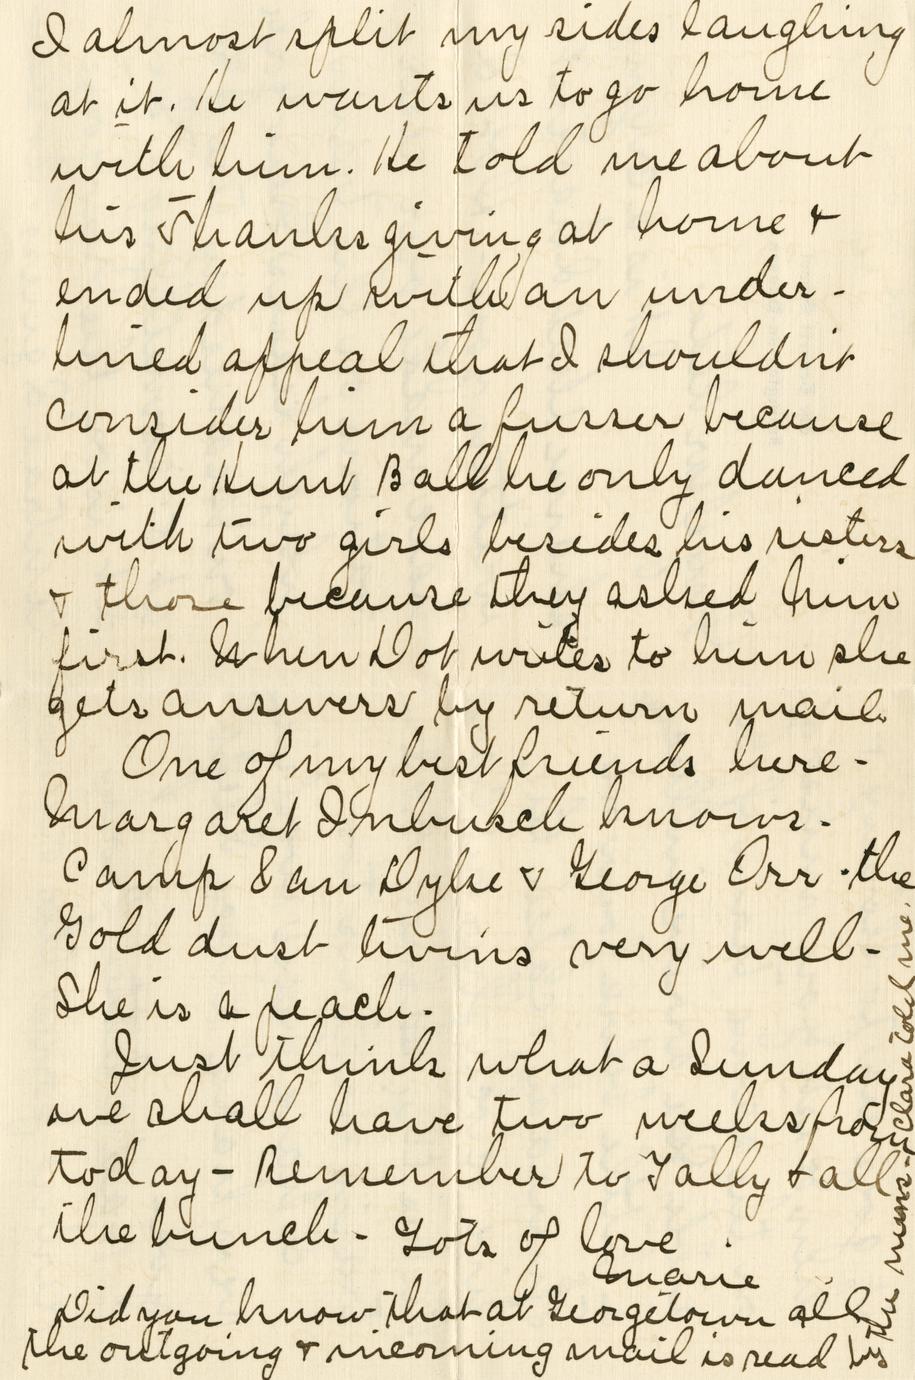 I almost split my sides laughing
at it. He wants us to go home
with him. He told me about
his Thanksgiving at home &
ended up with an under-
lined appeal that I shouldn't
consider him a fusser because
at the Hunt Ball he only danced
with two girls besides his sisters
& those because they asked him
first. When Dot writes to him she
gets answers by return mail.
One of my best friends here-
Margaret Imbusch knows-
Camp Van Dyke & George Orr - the
Gold dust twins very well-
She is a peach.
Just think what a Sunday
we shall have two weeks from
today - Remember to Tally & all
the bunch - Lots of love
Marie
Did you know that at Georgetown all
the outgoing & incoming mail is read by
the nuns - Clara told me.